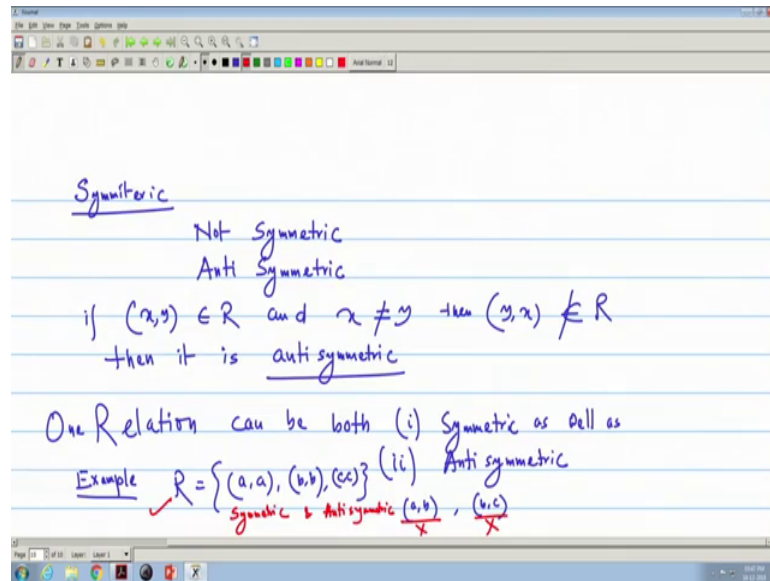 Journal
File Edit View Page Tools Options Help
Arial Normal 12
Symmiteric
Not Symmetric
Anti Symmetric
if (x,y) ∈ R and x ≠ y then (y,x) ∉ R
then it is antisymmetric
One Relation can be both (i) Symmetric as well as
(ii) Antisymmetric
Example R = {(a,a), (b,b), (c,c)}
Symmetric & Antisymmetric (a,b) , (b,c)
X X
Page of 10 Layer: Layer 1